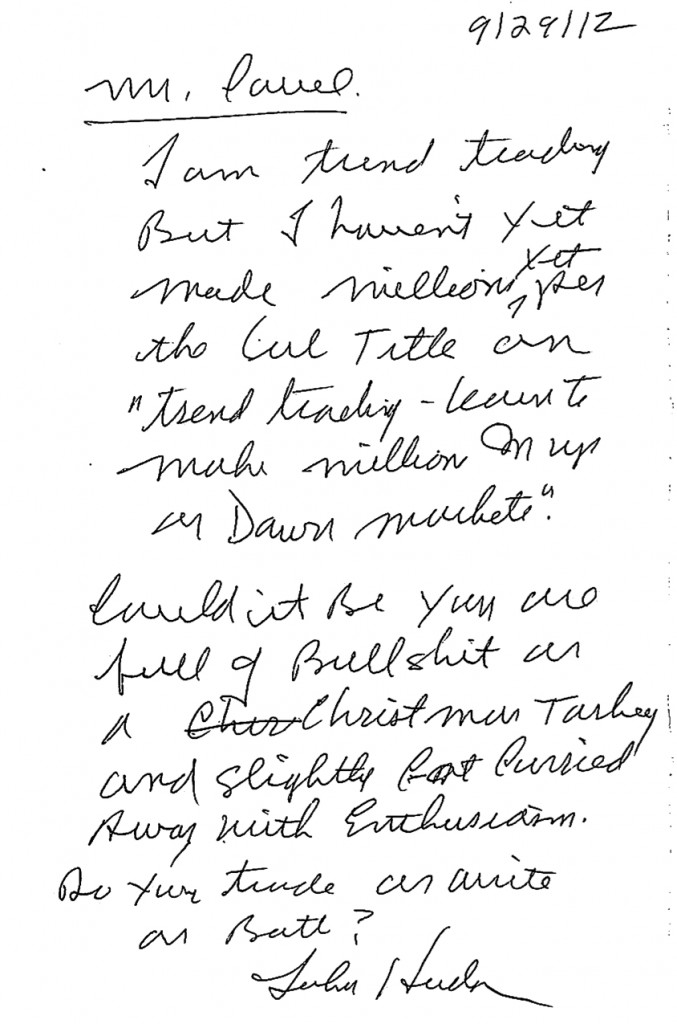 9/29/12
Mr. Covel.
I am trend trading
But I haven't yet
made millions yet, per
the Title on
"trend trading - learn to
make million in up
or Down markets".
Could it Be you are
full of Bullshit as
a Christmas Turkey
and slightly Carried
Away with Enthusiasm.
Do you trade or write
or Both?
John